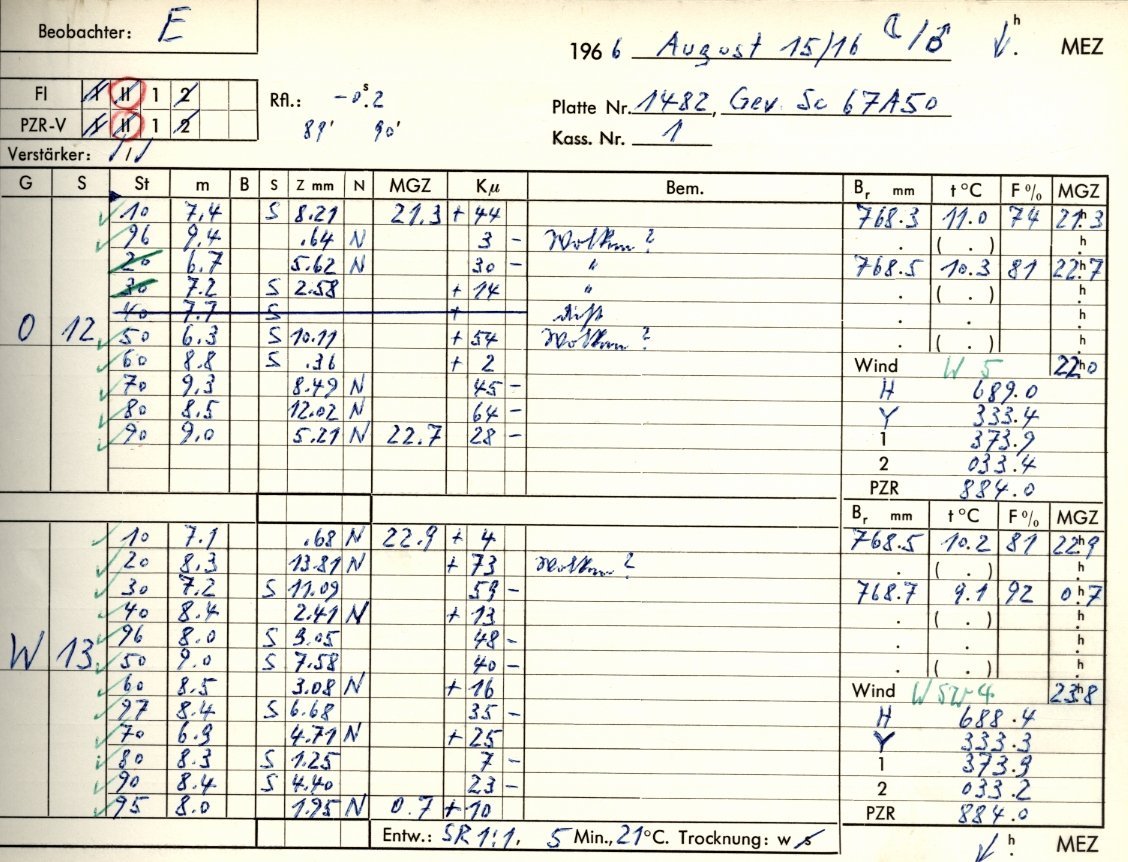 Beobachter: E
1966 August 15/16 h MEZ
FI I II 1 2
Rfl.: -0ˢ.2
Platte Nr. 1482, Gev. Sc 67A50
PZR-V I II 1 2
89' 90'
Kass. Nr. 1
Verstärker:
G S St m B S Z mm N MGZ Kμ Bem. Br mm t °C F % MGZ
10 7.4 S 8.21 21.3 + 44 768.3 11.0 74 21ʰ3
96 9.4 .64 N 3 - Wolken? . ( . ) h
20 6.7 5.62 N 30 - " 768.5 10.3 81 22ʰ7
30 7.2 S 2.58 + 14 " . ( . ) h
40 7.7 S + . h
O 12 50 6.3 S 10.11 + 54 Wolken? . ( . ) h
60 8.8 S .36 + 2 Wind W 5 22ʰ0
70 9.3 8.49 N 45 - H 689.0
80 8.5 12.02 N 64 - Y 333.4
90 9.0 5.21 N 22.7 28 - 1 373.9
2 033.4
PZR 884.0
Br mm t °C F % MGZ
10 7.1 .68 N 22.9 + 4 768.5 10.2 81 22ʰ9
20 8.3 13.81 N + 73 Wolken? . ( . ) h
30 7.2 S 11.09 59 - 768.7 9.1 92 0ʰ7
40 8.4 2.41 N + 13 . ( . ) h
96 8.0 S 9.05 48 - . h
W 13 50 9.0 S 7.58 40 - . ( . ) h
60 8.5 3.08 N + 16 Wind WSW 4 23ʰ8
97 8.4 S 6.68 35 - H 688.4
70 6.9 4.71 N + 25 Y 333.3
80 8.3 S 1.25 7 - 1 373.9
90 8.4 S 4.40 23 - 2 033.2
95 8.0 1.95 N 0.7 + 10 PZR 884.0
Entw.: SR 1:1, 5 Min., 21°C. Trocknung: w s h MEZ